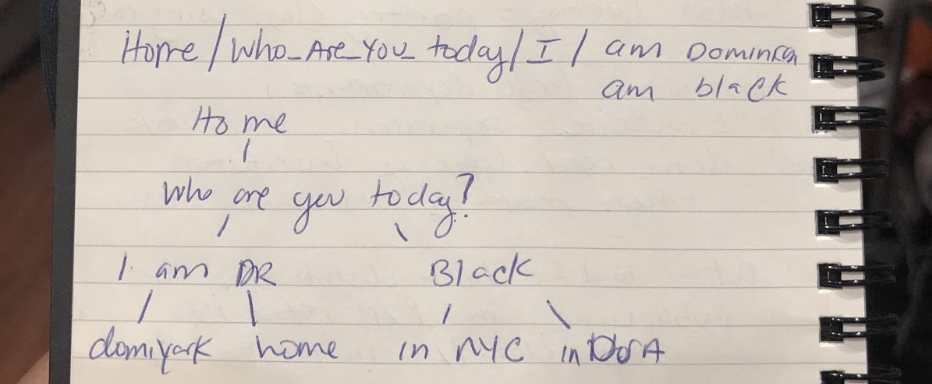 Home/Who_Are_You_today/I/ am Dominican
am black
Home
Who are you today?
I am DR Black
domiyork home in NYC in